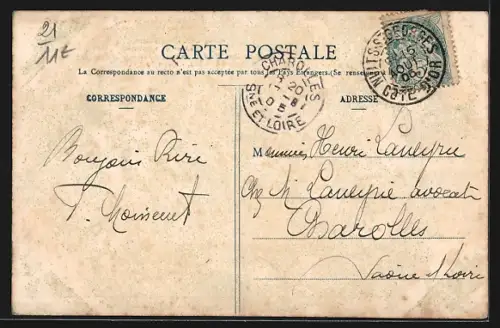 21
11E
CARTE POSTALE
La Correspondance au recto n'est pas acceptée par tous les Pays Étrangers. (Se renseigner à la
CORRESPONDANCE
ADRESSE
CHAROLLES
20
8
05
SNE ET LOIRE
NUITS-ST-GEORGES
COTE-D'OR
Bonjour Riri
T. Moissenet
Monsieur Henri Laneyrie
Chez M. Laneyrie avocat
Charolles
Saône & Loire